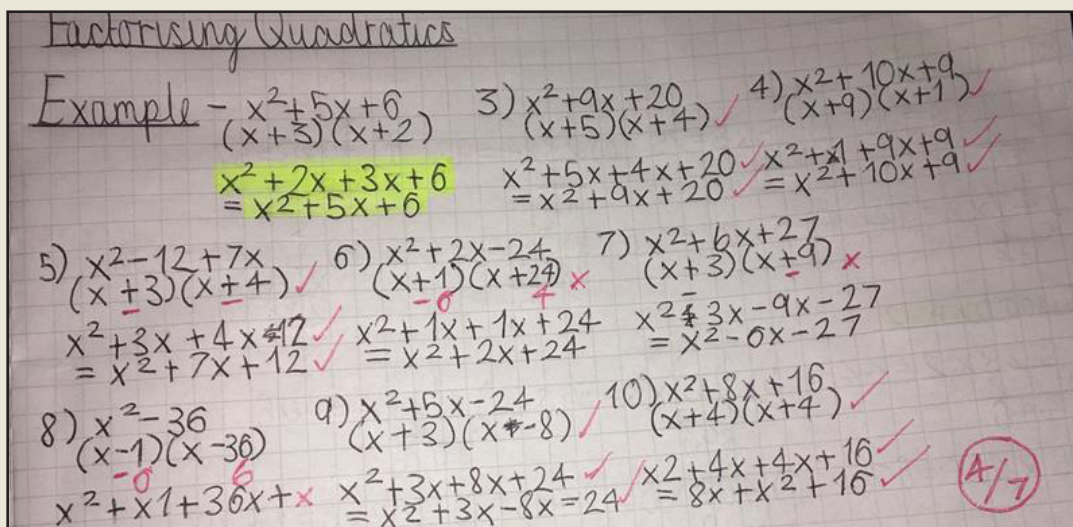 Factorising Quadratics
Example - x²+5x+6
(x+3)(x+2)
x²+2x+3x+6
= x²+5x+6
3) x²+9x+20
(x+5)(x+4) ✓
x²+5x+4x+20 ✓
= x²+9x+20 ✓
4) x²+10x+9
(x+9)(x+1) ✓
x²+x1+9x+9 ✓
= x²+10x+9 ✓
5) x²-12+7x
(x+3)(x+4) ✓
x²+3x+4x+12 ✓
= x²+7x+12 ✓
6) x²+2x-24
(x+1)(x+24) x
-6 4
x²+1x+1x+24
= x²+2x+24
7) x²+6x+27
(x+3)(x+9) x
x²+3x-9x-27
= x²-6x-27
8) x²-36
(x-1)(x-36)
-6 6
x²+x1+36x+ x
9) x²+5x-24
(x+3)(x-8) ✓
x²+3x+8x+24 ✓
= x²+3x-8x=24 ✓
10) x²+8x+16
(x+4)(x+4) ✓
x2+4x+4x+16 ✓
= 8x+x²+16 ✓
4/7